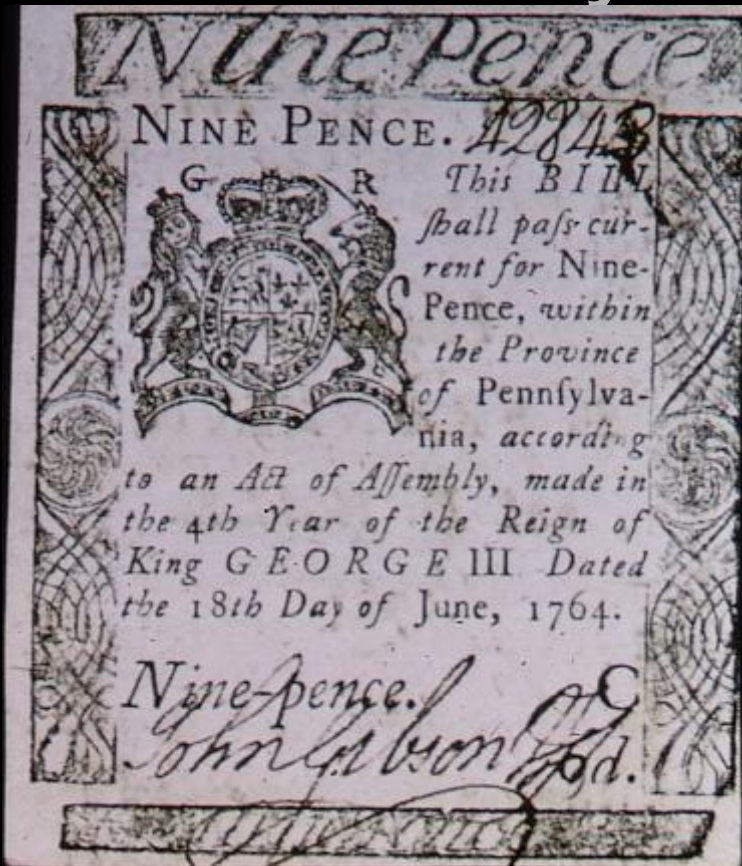 Nine Pence
NINE PENCE. 42843
G R
This BILL
ſhall paſs cur-
rent for Nine-
Pence, within
the Province
of Pennſylva-
nia, according
to an Act of Aſſembly, made in
the 4th Year of the Reign of
King GEORGE III Dated
the 18th Day of June, 1764.
Nine-pence. C
John Gibson d.